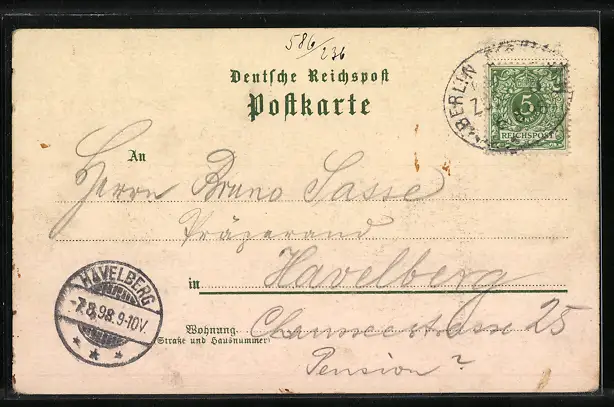 586/236
Deutsche Reichspost
Postkarte
BERLIN
5
REICHSPOST
An
Herrn Bruno Sasse
Präparand
in Havelberg
HAVELBERG
-7.8.98.9-10V.
Wohnung Chausseestrasse 25
(Straße und Hausnummer)
Pension?